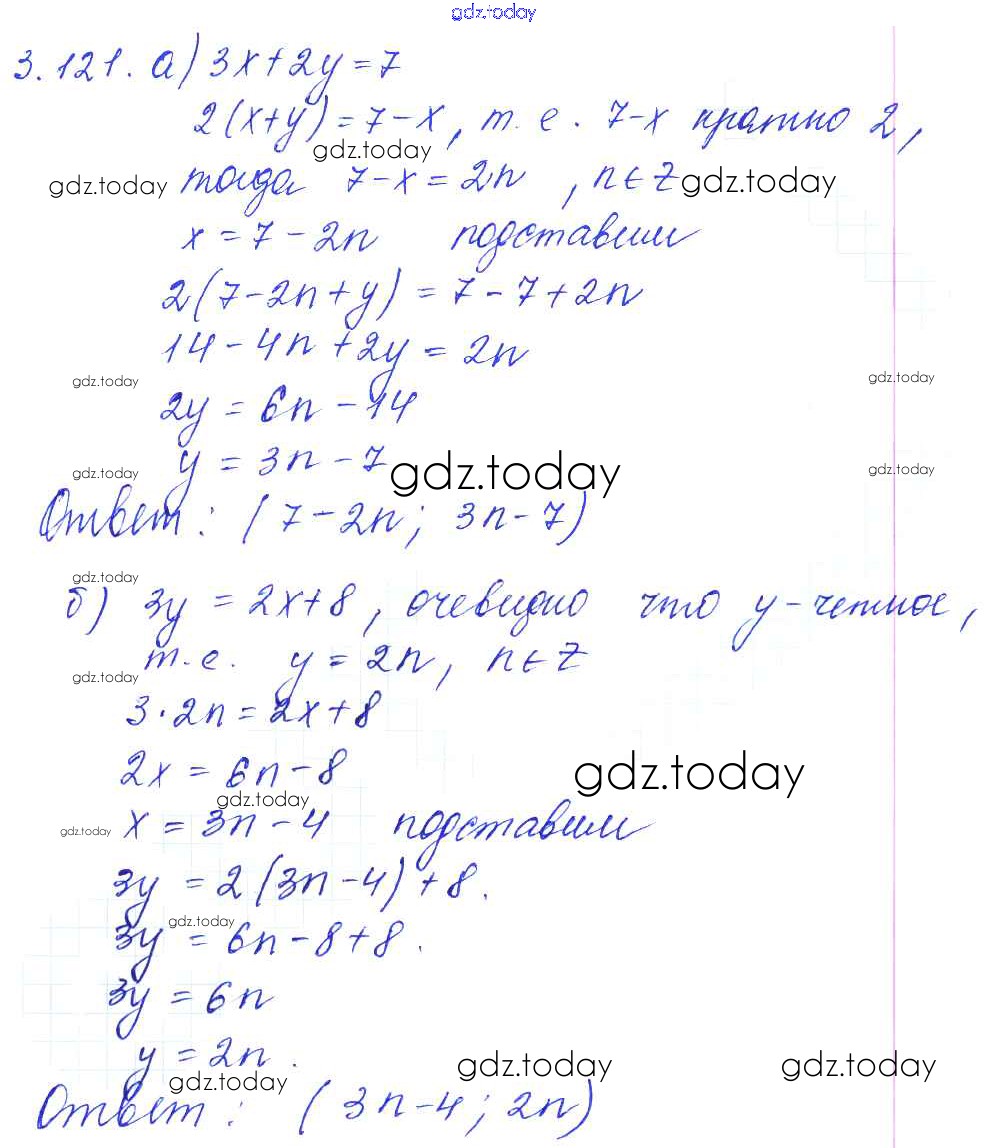 gdz.today
3.121. а) 3x+2y=7
2(x+y)=7-x, т. е. 7-x кратно 2,
gdz.today
gdz.today тогда 7-x=2n, n∈Z gdz.today
x=7-2n подставим
2(7-2n+y)=7-7+2n
14-4n+2y=2n
gdz.today gdz.today
2y=6n-14
gdz.today y=3n-7 gdz.today gdz.today
Ответ: (7-2n; 3n-7)
gdz.today
б) 3y=2x+8, очевидно что y-четное,
т.е. y=2n, n∈Z
gdz.today
3·2n=2x+8
2x=6n-8 gdz.today
gdz.today
gdz.today x=3n-4 подставим
3y=2(3n-4)+8.
gdz.today
3y=6n-8+8.
3y=6n
y=2n. gdz.today gdz.today
gdz.today
Ответ: (3n-4; 2n)